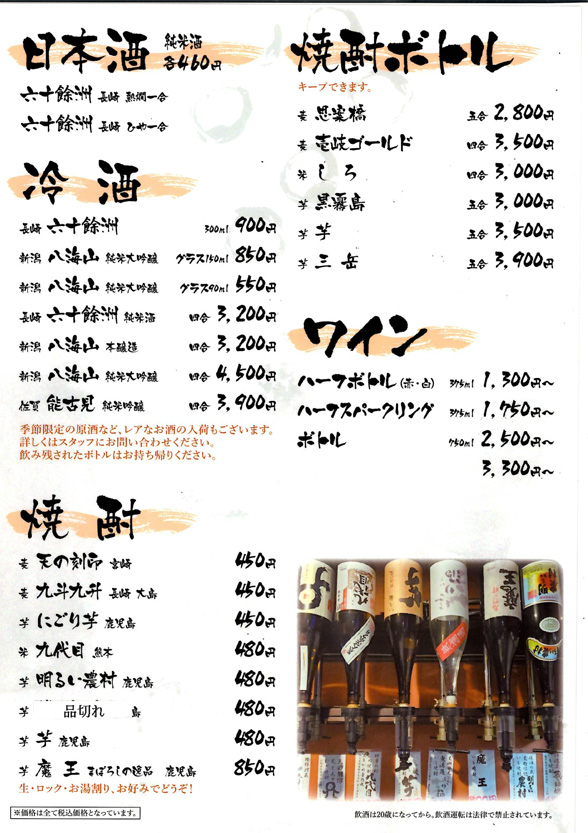 日本酒 純米酒 各460円
六十餘洲 長崎 熱燗一合
六十餘洲 長崎 ひや一合
冷酒
長崎 六十餘洲 300ml 900円
新潟 八海山 純米大吟醸 グラス150ml 850円
新潟 八海山 純米大吟醸 グラス90ml 550円
長崎 六十餘洲 純米酒 四合 3,200円
新潟 八海山 本醸造 四合 3,200円
新潟 八海山 純米大吟醸 四合 4,500円
佐賀 能古見 純米吟醸 四合 3,900円
季節限定の原酒など、レアなお酒の入荷もございます。
詳しくはスタッフにお問い合わせください。
飲み残されたボトルはお持ち帰りください。
焼酎
麦 天の刻印 宮崎 450円
麦 九斗九升 長崎 大島 450円
芋 にごり芋 鹿児島 450円
米 九代目 熊本 480円
芋 明るい農村 鹿児島 480円
芋 品切れ 島 480円
芋 芋 鹿児島 480円
芋 魔王 まぼろしの逸品 鹿児島 850円
生・ロック・お湯割り、お好みでどうぞ!
※価格は全て税込価格となっています。
焼酎ボトル
キープできます。
麦 思案橋 五合 2,800円
麦 壱岐ゴールド 四合 3,500円
米 しろ 四合 3,000円
芋 黒霧島 五合 3,000円
芋 芋 四合 3,500円
芋 三岳 五合 3,900円
ワイン
ハーフボトル(赤・白) 375ml 1,300円〜
ハーフスパークリング 375ml 1,750円〜
ボトル 750ml 2,500円〜
3,300円〜
魔王
魔王
農村
飲酒は20歳になってから。飲酒運転は法律で禁止されています。